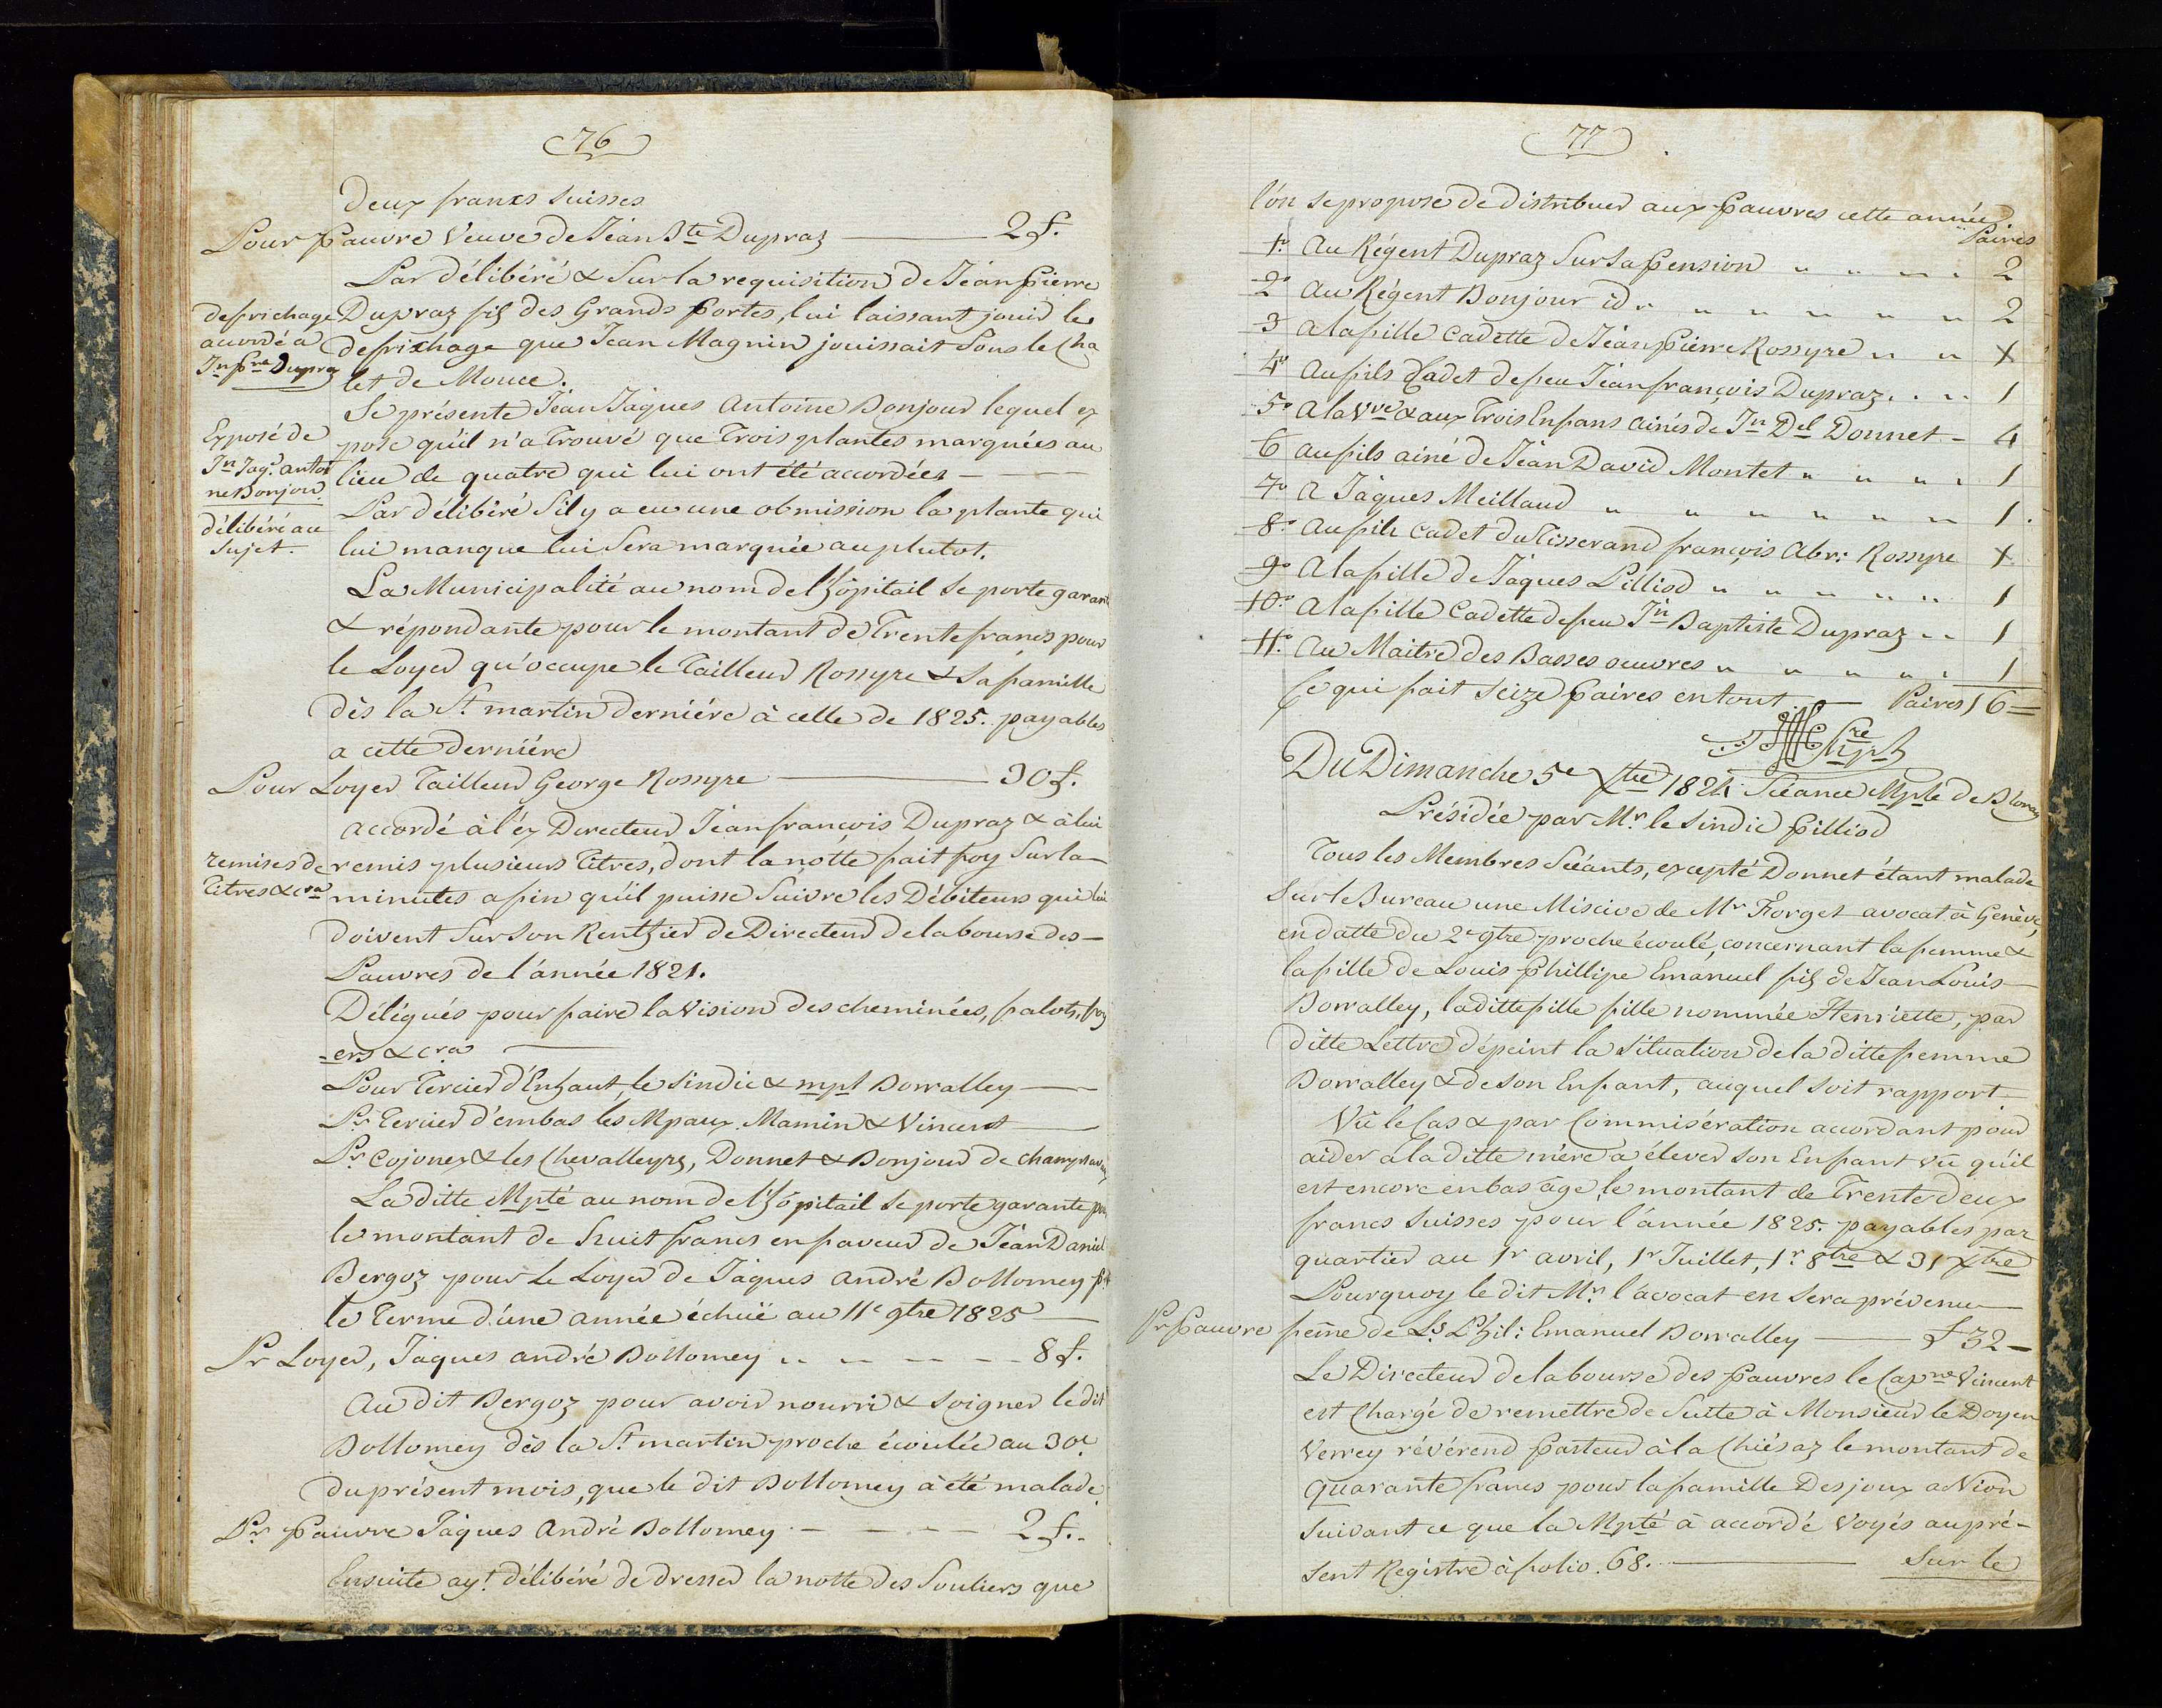 76
deux francs suisses
Pour Pauvre Veuve de Jéan Bte Dupraz — 2 f.
Par délibéré & Sur la requisition de Jéan Pierre
defrichage Dupraz fils des Grands Portes, lui laissant jouir le
acordé a defrichage que Jean Magnin jouissait Sous le Cha
Jn Pre Dupraz let de Mouce.
Se présente Jéan Jaques Antoine Bonjour lequel ex
Exposé de pose qu'il n'a Trouvé que Trois plantes marquées au
Jn Jaqs antoi lieu de quatre qui lui ont été accordées —
ne Bonjour.
Par délibéré S'il y a eu une obmission la plante qui
délibéré au
sujet. lui manque lui Sera marquée au plutot.
La Municipalité au nom de l'hôpitail se porte garant
& répondante pour le montant de Trente francs pour
le Loyer qu'occupe le Tailleur Rossyre & Sa famille
dès la St martin derniére à celle de 1825. payables
a cette derniére
Pour Loyer Tailleur George Rossyre — 30 f.
accordé à l'ex Directeur Jéan françois Dupraz & à lui
remises de remis plusieurs Titres, dont la notte fait foy Sur la
Titres & cra minutes afin qu'il puisse Suivre les Débiteurs qui lui
doivent Sur son Renthier de Directeur de la bourse des
Pauvres de l'année 1821.
Délégués pour faire la Vision des cheminées, falots, foy
-ers & cra —
Pour Tercier d'Enhaut, le Sindic & mpl Bovvalley —
Pr Tercier d'embas les Mpaux. Mamin & Vincent —
Pr Cojonex & les Chevalleyrs, Donnet & Bonjour de
La ditte Mpté au nom de l'hôpitail se porte garante pr
le montant de huit francs en faveur de Jéan Daniel
Bergoz pour Le Loyer de Jaques André Dollomey pr
le Terme d'une année échuë au 11e 9bre 1825 —
Pr Loyer, Jaques andré Dollomey — 8 f.
Au dit Bergoz pour avoir nourri & soigner le dit
Dollomey dès la St martin proche écoulée au 30e
du présent mois, que le dit Dollomey à été malade
Pr Pauvre Jaques André Dollomey — 2 f.
Ensuite ayt délibéré de dresser la notte des Souliers que
77
l'on se propose de distribuer aux Pauvres cette année
Paires
1o Au Régent Dupraz Sur Sa Pension " " " " 2
2o Au Régent Bonjour id. " " " " " 2
3 A la fille Cadette de Jéan Pierre Rossyre " " X
4o Au fils Cadet de feu Jéan françois Dupraz " " 1
5o A la Vve & aux Trois Enfans ainés de Jn Del Donnet — 4
6 Au fils ainé de Jéan David Montet " " " " 1
7o A Jaques Meillaud " " " " " " 1.
8o Au fils Cadet du Tisserand françois Abr: Rossyre X
9o A la fille de Jaques Pilliod " " " " " 1
10o A la fille Cadette de feu Jn Baptiste Dupraz " " 1
11o Au Maitre des Basses oeuvres " " " " " 1
Ce qui fait Seize Paires en tout — Paires 16 =
Du Dimanche 5e Xbre 1824 Séance Mple de Blonay
Présidée par Mr. le Sindic Pilliod
Tous les Membres Séeants, excepté Donnet étant malade
Sur le Bureau une Miscive de Mr Forget avocat à Genève,
en datte du 2e 9bre proche écoulé, concernant la femme &
la fille de Louis Phillipe Emanuel fils de Jean Louis
Bovvalley, la ditte fille fille nommée Henriette, par
ditte Lettre dépeint la Situation de la ditte femme
Bovvalley & de son Enfant, auquel soit rapport
Vû le Cas & par Commisération accordant pour
aider à la ditte mére à élever son Enfant vû qu'il
est encore en bas âge le montant de Trente deux
francs Suisses pour l'année 1825. payables par
quartier au 1r avril, 1r Juillet, 1r 8bre & 31 Xbre
Pourquoy le dit Mr. l'avocat en Sera prévenu
Pr Pauvre feme de Ls Phil: Emanuel Bovvalley — f 32 —
Le Directeur de la bourse des Pauvres le Capne Vincent
est Chargé de remettre de Suite à Monsieur le Doyen
Verrey révérend Pasteur à la Chiésaz le montant de
Quarante francs pour la famille Desjoux a Nion
Suivant ce que la Mpté à accordé Voyés au pré-
sent Régistre à folio. 68. — Sur le